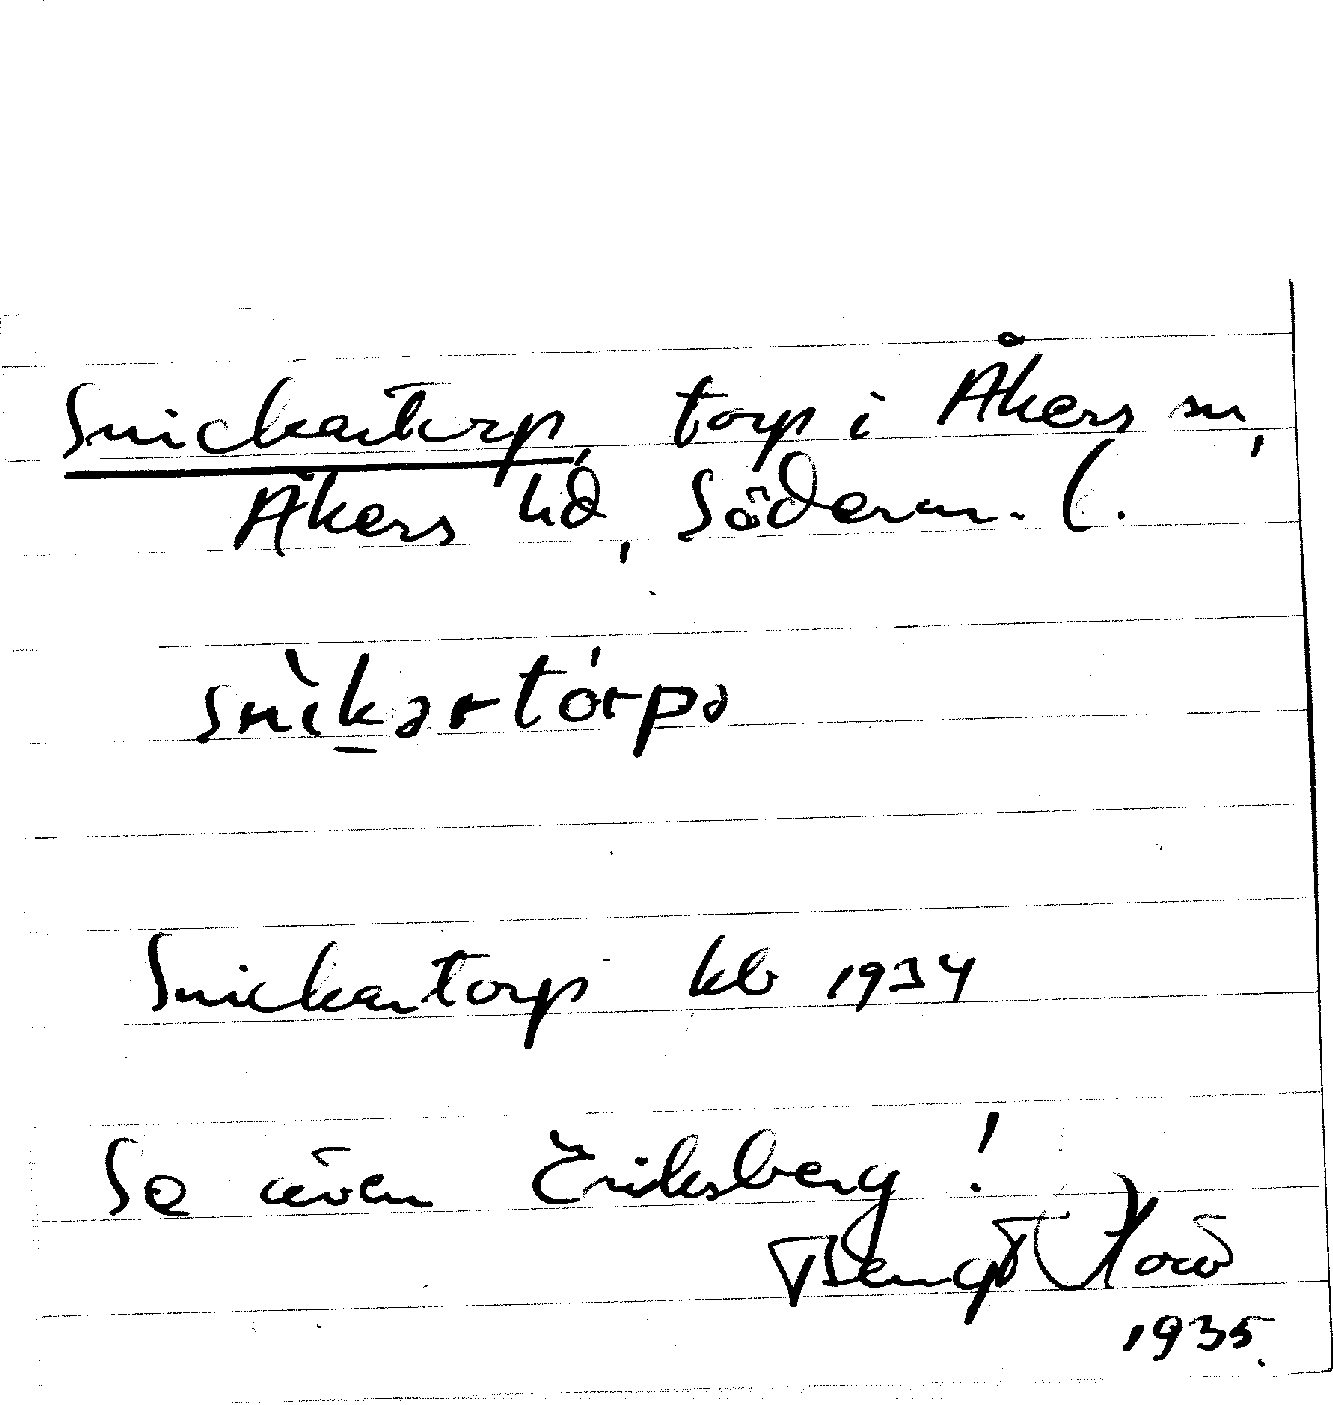 Snickartorp, torp i Åkers sn,
Åkers hd, Söderm. l.
snìkartórpə
Snickartorp kb 1934
Se även Eriksberg!
Bengt
1935.